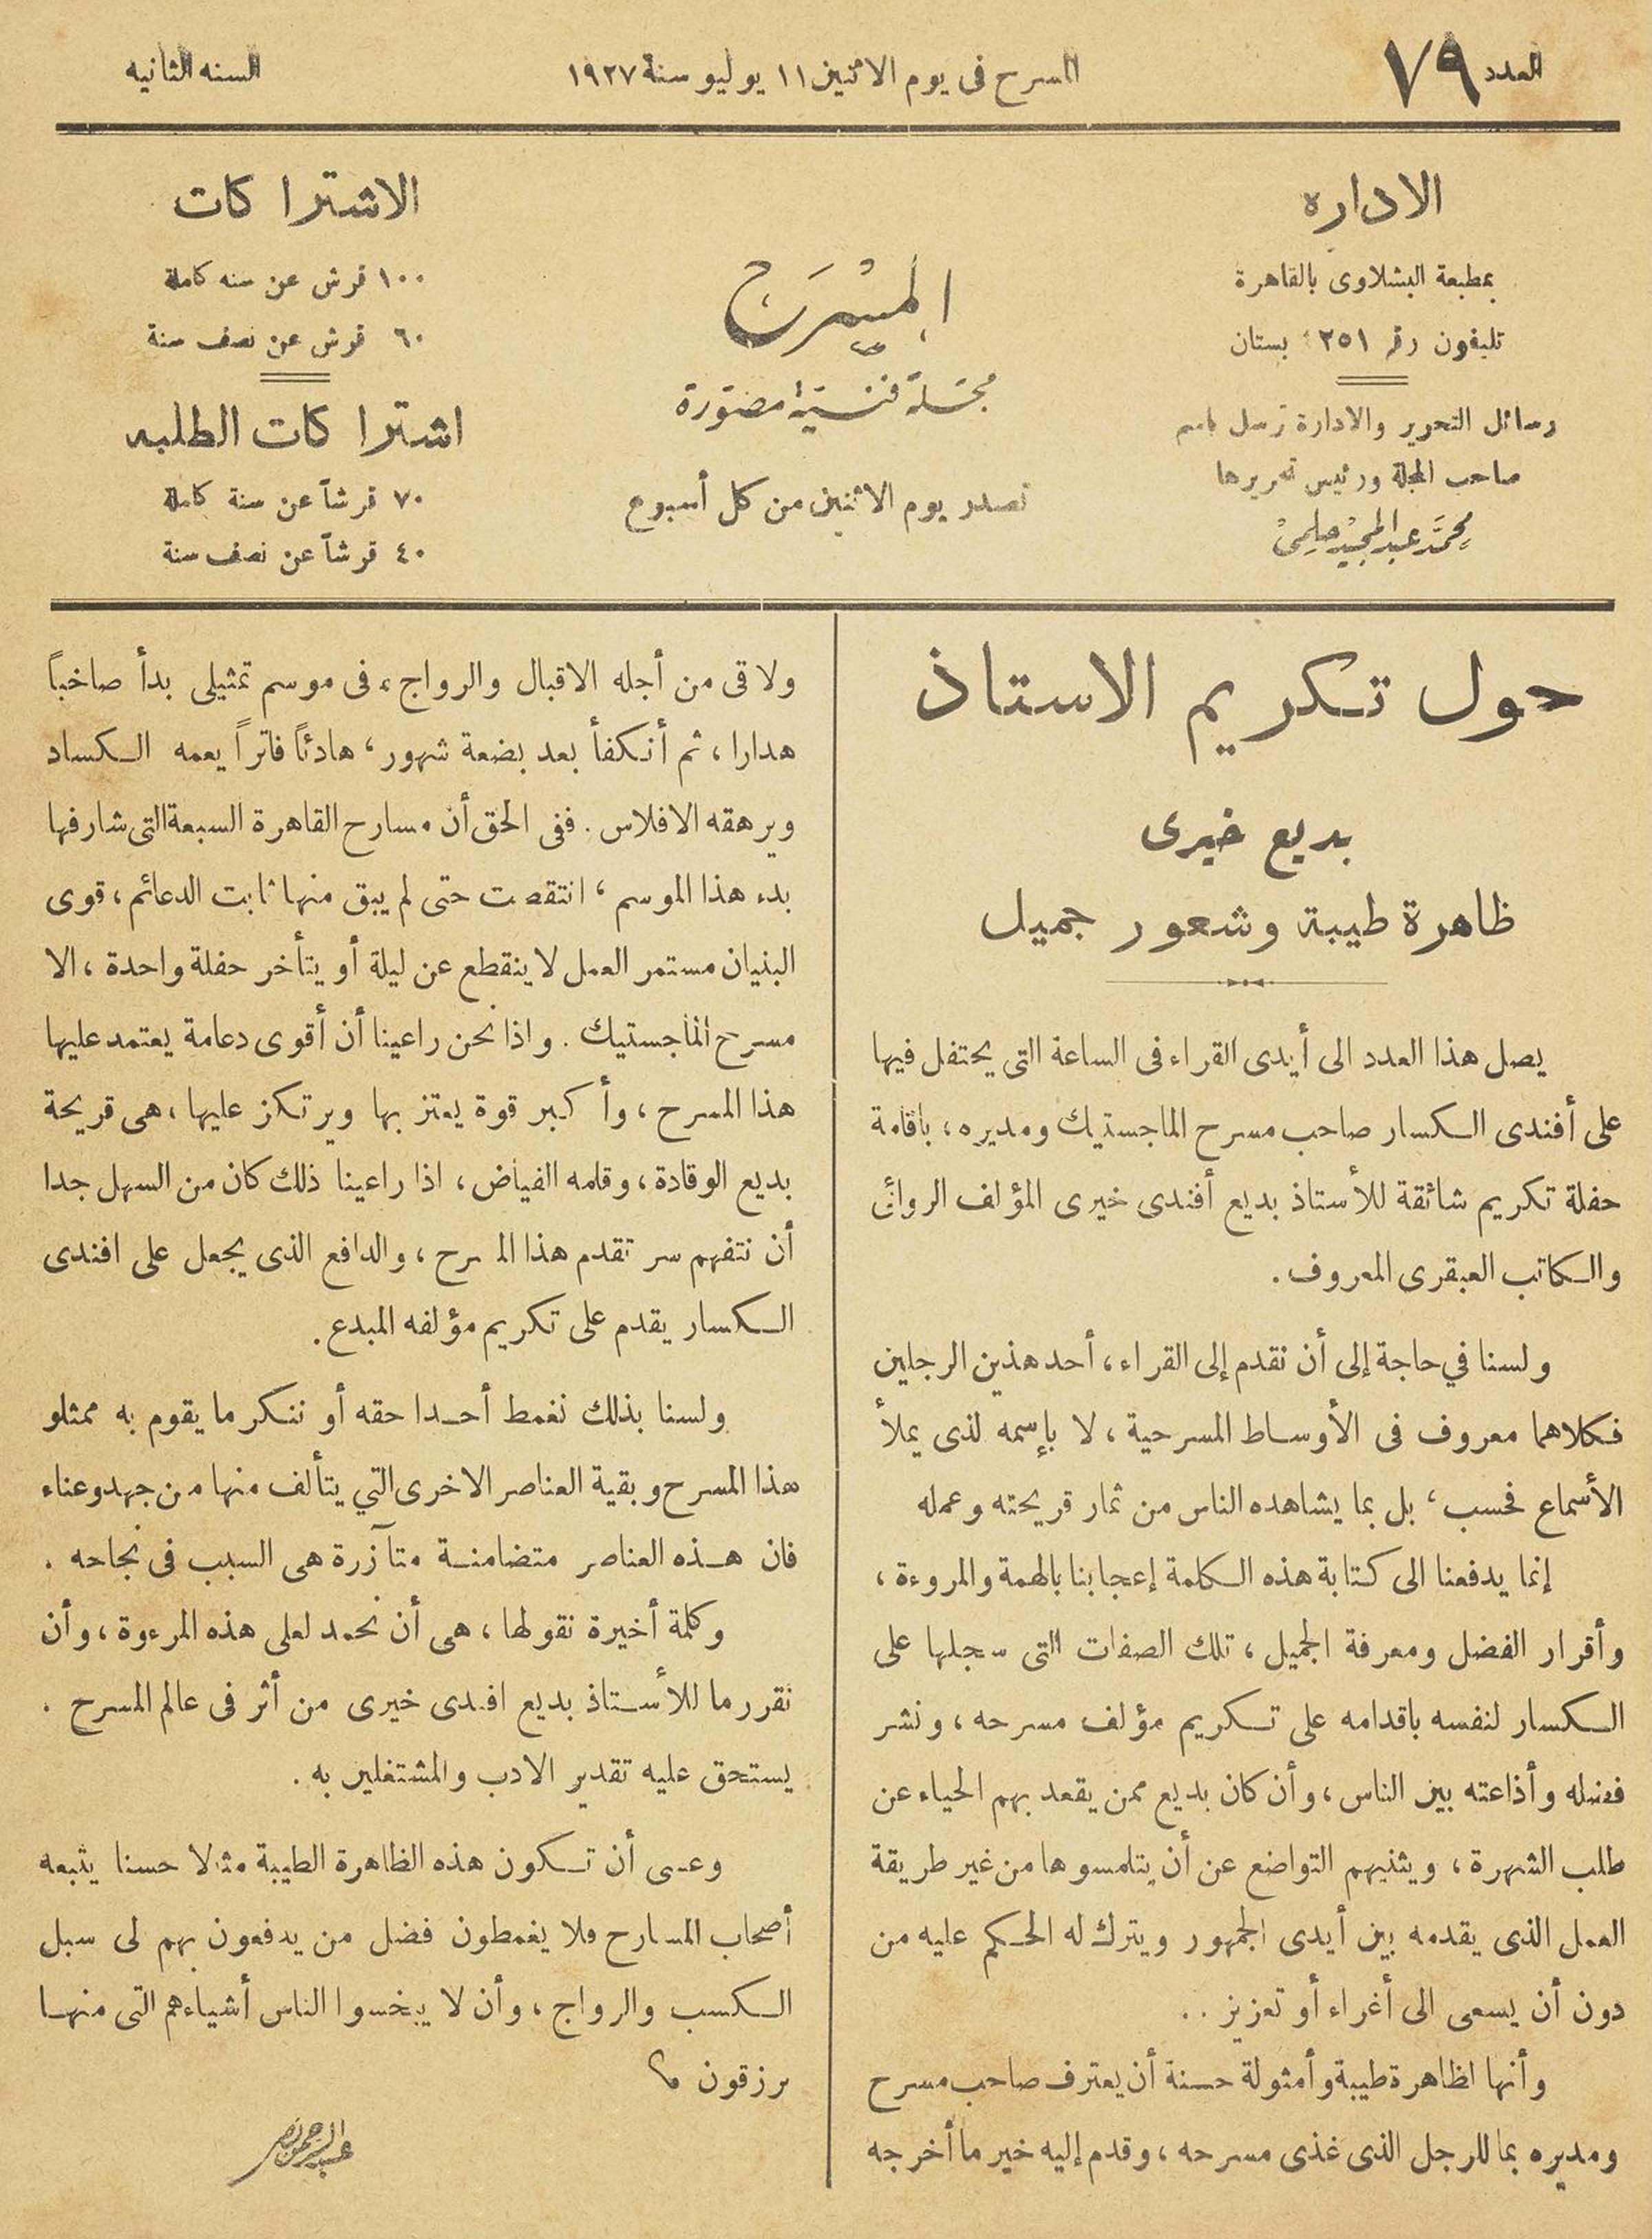 العدد ٧٩
المسرح فى يوم الاثنين ١١ يوليو سنة ١٩٢٧
السنه الثانيه
الاداره
بمطبعة البشلاوى بالقاهرة
تليفون رقم ٢٥١ بستان
رسائل التحرير والادارة ترسل باسم
صاحب المجلة ورئيس تحريرها
محمد عبد المجيد حلمى
المسرح
مجلة فنية مصورة
تصدر يوم الاثنين من كل أسبوع
الاشتراكات
١٠٠ قرش عن سنه كاملة
٦٠ قرش عن نصف سنة
اشتراكات الطلبه
٧٠ قرشاً عن سنة كاملة
٤٠ قرشاً عن نصف سنة
حول تكريم الاستاذ
بديع خيرى
ظاهرة طيبة وشعور جميل
يصل هذا العدد الى أيدى القراء فى الساعة التى يحتفل فيها
على أفندى الكسار صاحب مسرح الماجستيك ومديره ، باقامة
حفلة تكريم شائقة للأستاذ بديع أفندى خيرى المؤلف الروائى
والكاتب العبقرى المعروف .
ولسنا في حاجة إلى أن نقدم إلى القراء ، أحد هذين الرجلين
فكلاهما معروف فى الأوساط المسرحية ، لا بإسمه لذى يملأ
الأسماع فحسب ، بل بما يشاهده الناس من ثمار قريحته وعمله
إنما يدفعنا الى كتابة هذه الكلمة إعجابنا بالهمة والمروءة ،
وأقرار الفضل ومعرفة الجميل ، تلك الصفات التى سجلها على
الكسار لنفسه باقدامه على تكريم مؤلف مسرحه ، ونشر
فضله وأذاعته بين الناس ، وأن كان بديع ممن يقعد بهم الحياء عن
طلب الشهرة ، ويثنيهم التواضع عن أن يتلمسوها من غير طريقة
العمل الذى يقدمه بين أيدى الجمهور ويترك له الحكم عليه من
دون أن يسعى الى أغراء أو تعزيز . .
وأنها لظاهرة طيبة وأمثولة حسنة أن يعترف صاحب مسرح
ومديره بما للرجل الذى غذى مسرحه ، وقدم إليه خير ما أخرجه
ولاقى من أجله الاقبال والرواج ، فى موسم تمثيلى بدأ صاخباً
هدارا ، ثم أنكفأ بعد بضعة شهور ، هادئاً فاتراً يعمه الكساد
ويرهقه الافلاس . ففى الحق أن مسارح القاهرة السبعة التى شارفها
بدء هذا الموسم ، انتقصت حتى لم يبق منها ثابت الدعائم ، قوى
البنيان مستمر العمل لا ينقطع عن ليلة أو يتأخر حفلة واحدة ، الا
مسرح الماجستيك . واذا نحن راعينا أن أقوى دعامة يعتمد عليها
هذا المسرح ، وأكبر قوة يعتز بها ويرتكز عليها ، هى قريحة
بديع الوقادة ، وقلمه الفياض ، اذا راعينا ذلك كان من السهل جدا
أن نتفهم سر تقدم هذا المسرح ، والدافع الذى يجعل على افندى
الكسار يقدم على تكريم مؤلفه المبدع .
ولسنا بذلك نغمط أحدا حقه أو ننكر ما يقوم به ممثلو
هذا المسرح وبقية العناصر الاخرى التي يتألف منها من جهد وعناء
فان هذه العناصر متضامنة متآزرة هى السبب فى نجاحه .
وكلمة أخيرة نقولها ، هى أن نحمد لعلى هذه المرءوة ، وأن
نقرر ما للأستاذ بديع افندى خيرى من أثر فى عالم المسرح .
يستحق عليه تقدير الادب والمشتغلين به .
وعسى أن تكون هذه الظاهرة الطيبة مثالا حسنا يتبعه
أصحاب المسارح فلا يغمطون فضل من يدفعون بهم لى سبل
الكسب والرواج ، وأن لا يبخسوا الناس أشياءهم التى منها
يرزقون
عبد الرحمن نصر